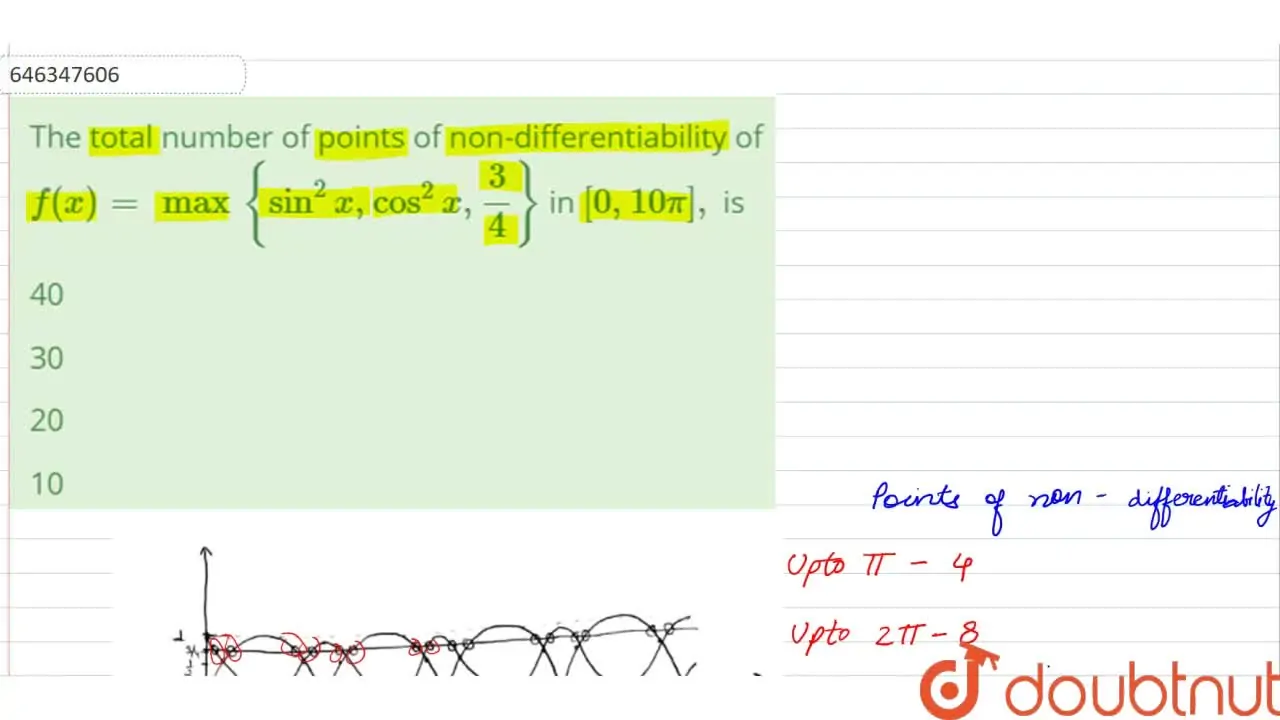 646347606
The total number of points of non-differentiability of
f(x) = max {sin² x, cos² x, 3/4} in [0, 10π], is
40
30
20
10
Points of non - differentiability
Upto π - 4
Upto 2π - 8
1
doubtnut